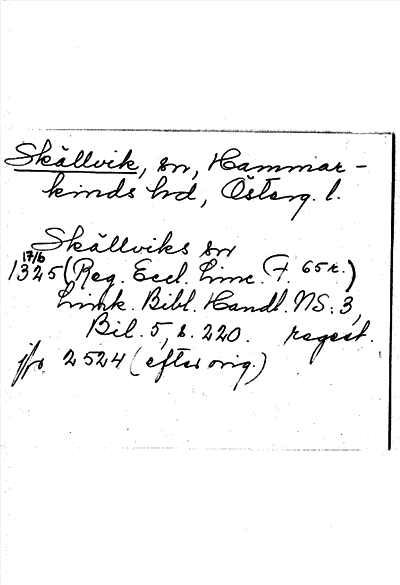 Skällvik, sn, Hammar-
kinds hd, Österg. l.
Skällviks sn
17/6
1325 (Reg. Eccl. Linc. f. 65 r.)
Link. Bibl. Handl. NS: 3,
Bil. 5, s. 220. regest.
jfr 2524 (efter orig.)